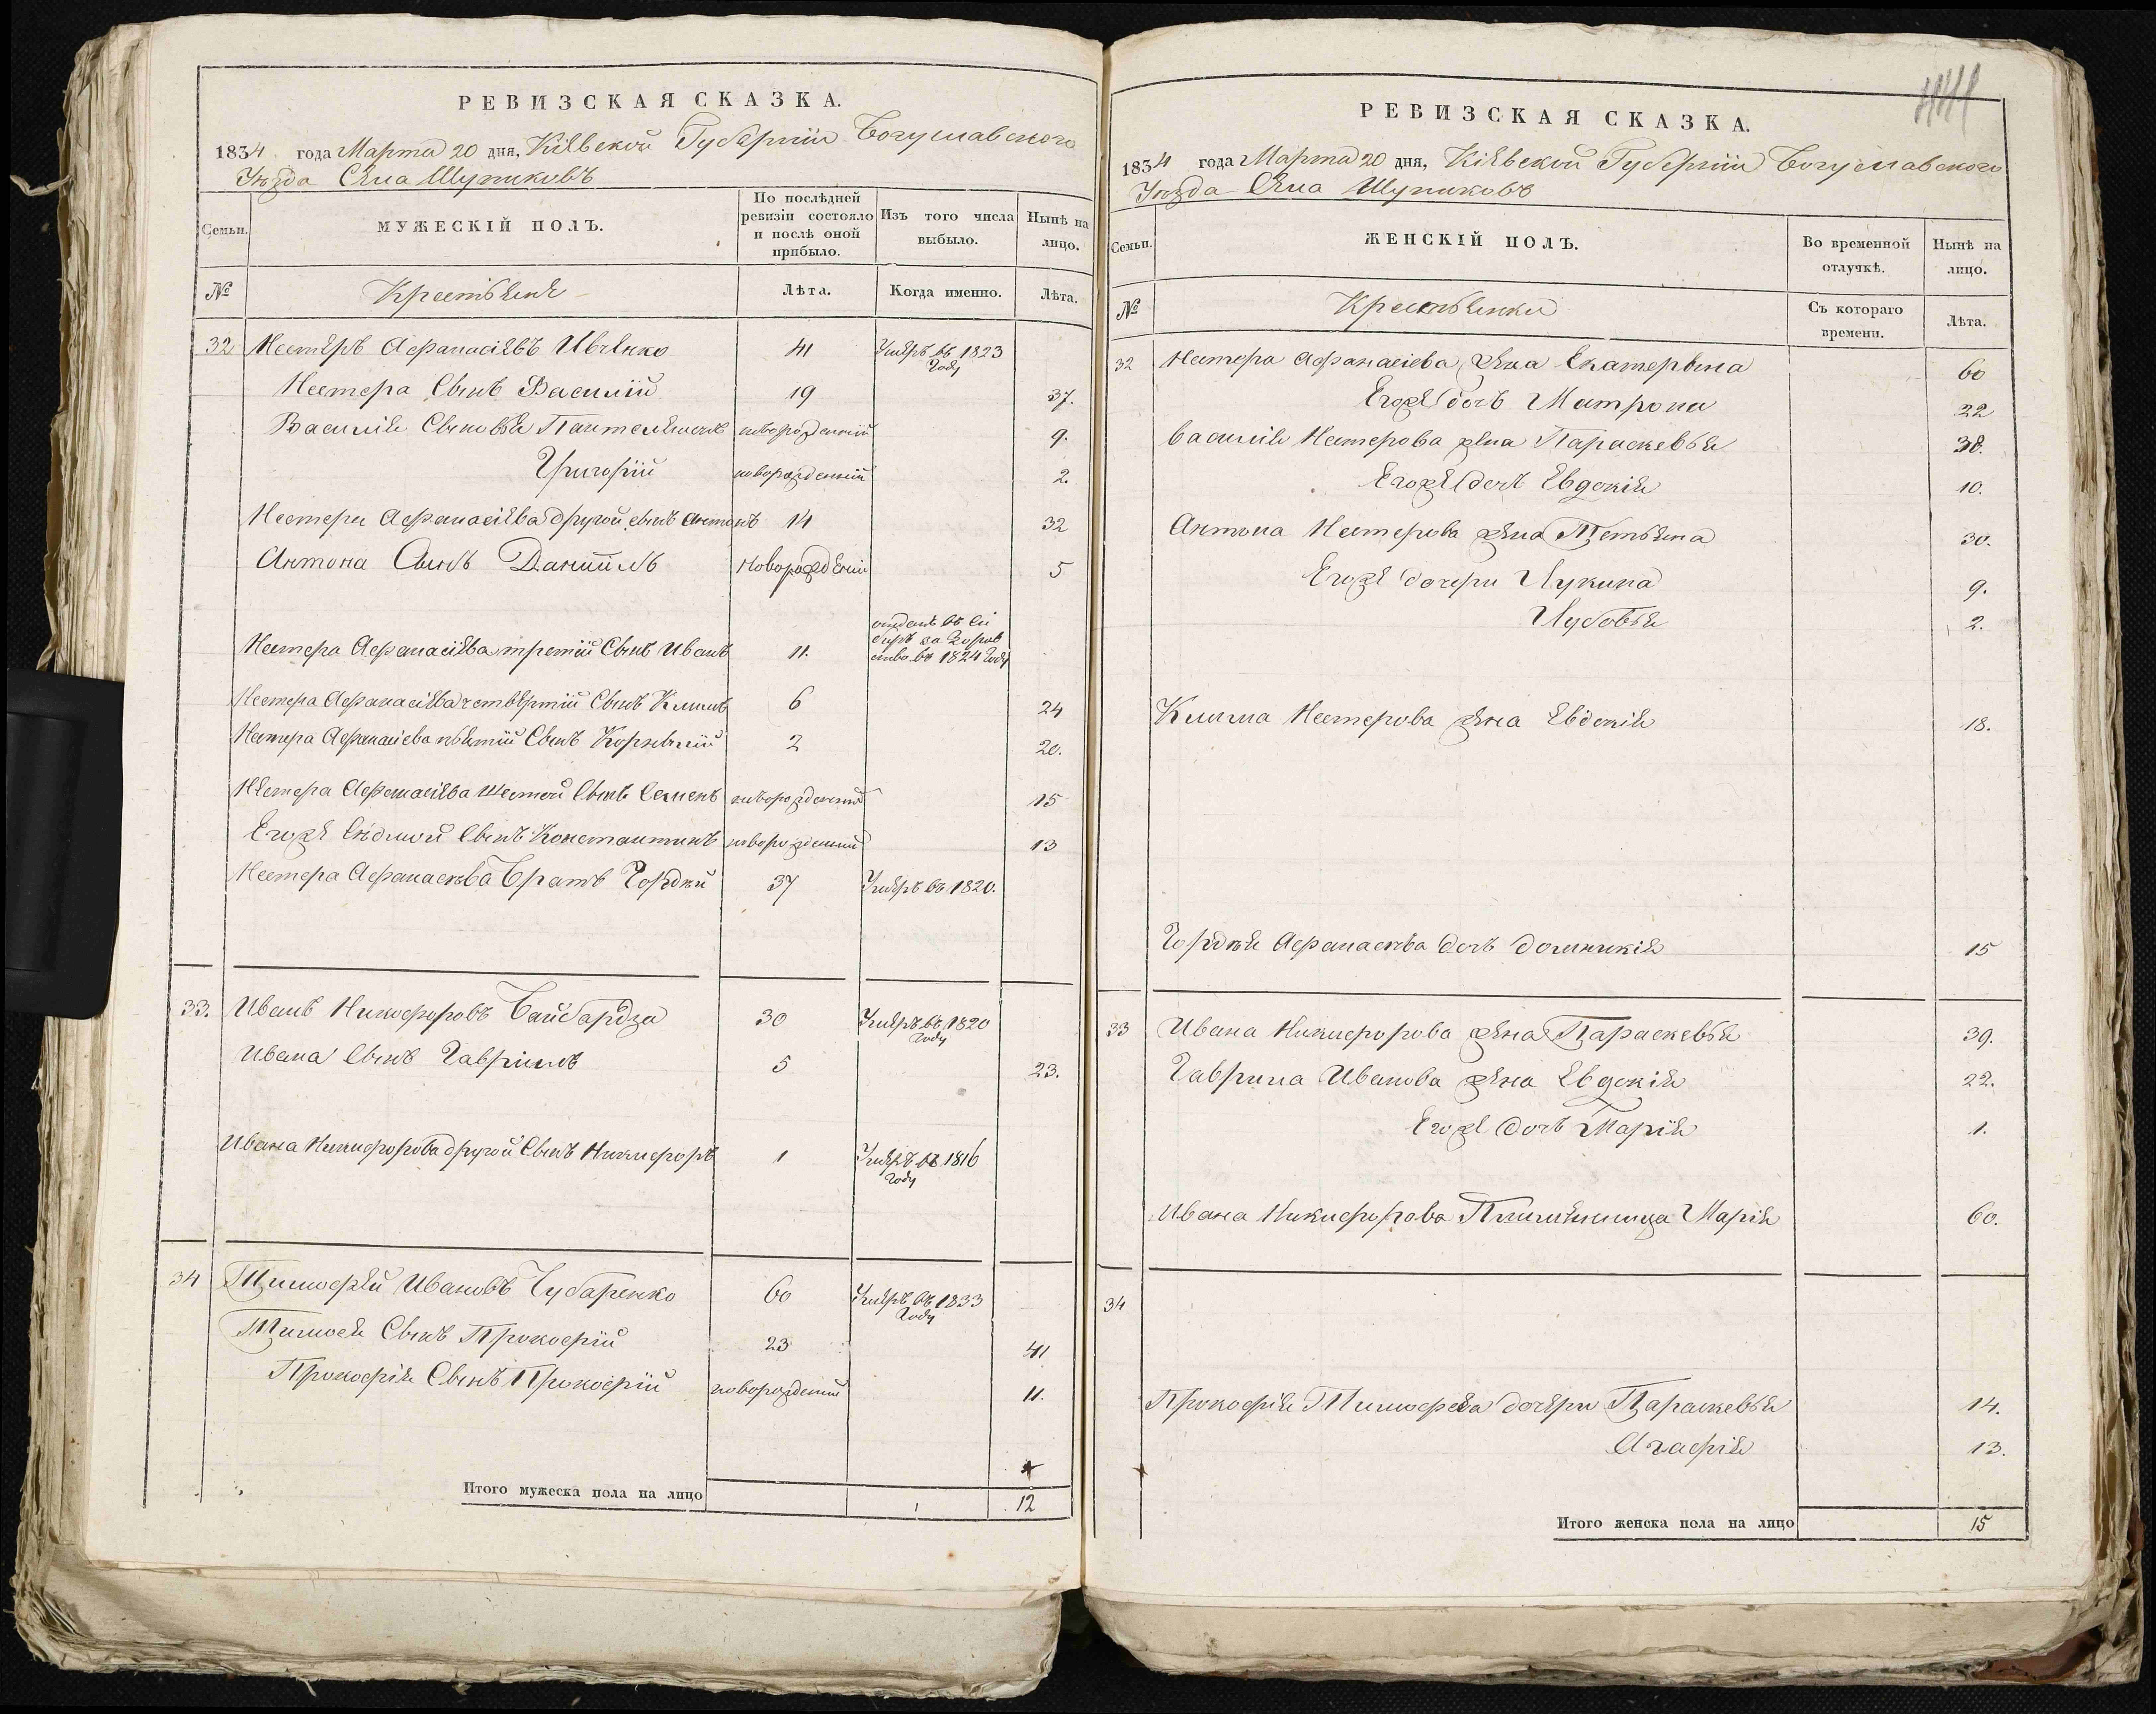 РЕВИЗСКАЯ СКАЗКА.
1834 года Марта 20 дня, Кіевской Губерніи Богуславского
Уѣзда Села Щупиковъ
Семьи. МУЖЕСКІЙ ПОЛЪ. По послѣдней ревизіи состояло и послѣ оной прибыло. Изъ того числа выбыло. Нынѣ на лицо.
№ Крестьяне Лѣта. Когда именно. Лѣта.
32 Нестеръ Афанасіевъ Ивченко 41 Умеръ въ 1823 Году
Нестера Сынъ Василій 19 37.
Василія Сыновья Пантелеймонъ новорожденній 9.
Григорій новорожденній 2.
Нестера Афанасіева другой сынъ Антонъ 14 32
Антона Сынъ Даніилъ новорожденій 5
Нестера Афанасіева третій Сынъ Иванъ 11. отданъ въ Си
биръ за воров
ство въ 1824 Году
Нестера Афанасіева четвертій Сынъ Климъ 6 24
Нестера Афанасіева пьятій Сынъ Корнилій 2 20.
Нестера Афанасіева Шестой Сынъ Семенъ новорожденній 15
Егоже Седмой Сынъ Константинъ новорожденній 13
Нестера Афанасьева Братъ Гордѣй 37 Умеръ въ 1820.
33. Иванъ Никифоровъ Байбардза 30 Умеръ въ 1820 Году
Ивана Сынъ Гавріилъ 5 23.
Ивана Никифорова другой Сынъ Никифоръ 1 Умеръ въ 1816 Году
34 Тимофей Ивановъ Чубаренко 60 Умеръ въ 1833 Году
Тимофея Сынъ Прокофій 23 41
Прокофія Сынъ Прокофій новорожденій 11.
Итого мужеска пола на лицо 12
РЕВИЗСКАЯ СКАЗКА.
1834 года Марта 20 дня, Кіевской Губерніи Богуславского
Уѣзда Села Щупиковъ
Семьи. ЖЕНСКІЙ ПОЛЪ. Во временной отлучкѣ. Нынѣ на лицо.
№ Крестьянки Съ котораго времени. Лѣта.
32 Нестера Афанасіева жена Екатерина 60
Егоже дочь Матрона 22
Василія Нестерова жена Параскевья 38.
Егоже дочь Евдокія 10.
Антона Нестерова жена Тетьяна 30.
Егоже дочери Лукина 9.
Любовья 2.
Клима Нестерова жена Евдокія 18.
Гордѣя Афанасьева дочь Доминикія 15
33 Ивана Никифорова жена Параскевья 39.
Гаврила Иванова жена Евдокія 22.
Егоже дочь Марія 1.
Ивана Никифорова Племянница Марія 60.
34
Прокофія Тимофеева дочери Параскевья 14.
Агафія 13.
Итого женска пола на лицо 15